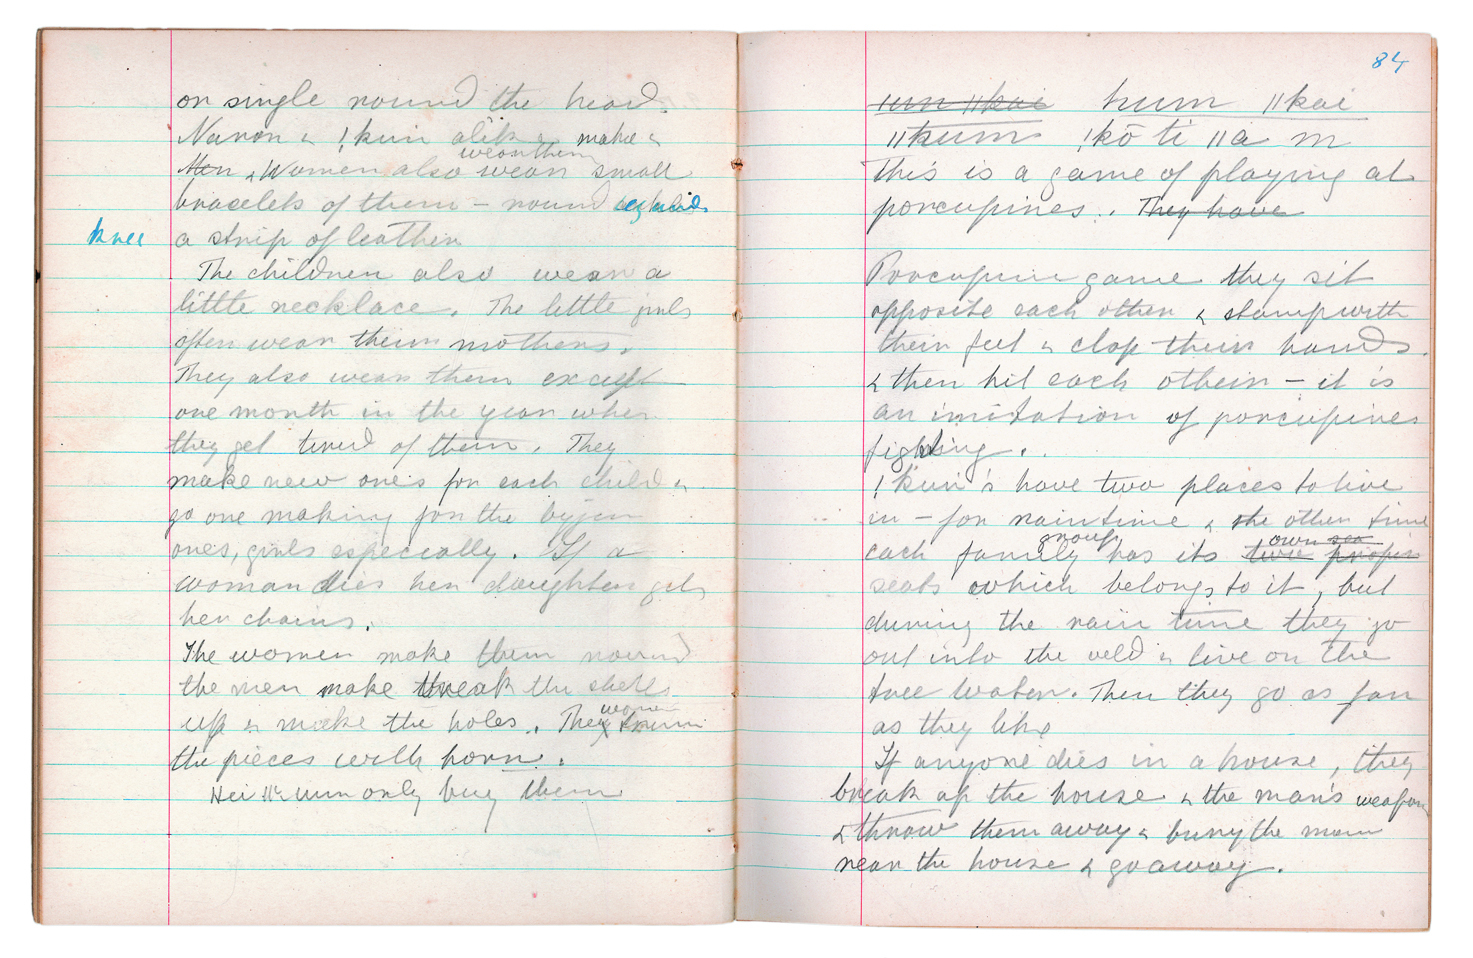 on single round the head.
Naron & !kun alike & make &
wear them
Men & Women also wear small
bracelets of them – round
knee a strip of leather
The children also wear a
little necklace. The little girls
often wear them mothers.
They also wear them except
one month in the year when
they get tired of them. They
make new ones for each child &
go one making for the bigger
ones, girls especially. If a
woman dies her daughter gets
her chains.
The women make them round
the men make break the shells
women
up & make the holes. They trim
the pieces with horn.
only buy them
84
ǁkai hum ǁkai
ǁkum !kō ti ǁa m
This is a game of playing at
porcupines. They have
Porcupine game they sit
opposite each other & stamp with
their feet & clap their hands.
& then hit each other – it is
an imitation of porcupines
fighting.
!kun's have two places to live
in – for raintime & the other time
group own
each family has its two proper
seats which belongs to it, but
during the rain time they go
out into the veld & live on the
free water. Then they go as far
as they like
If anyone dies in a house, they
break up the house & the man's weapons
& throw them away & bury the man
near the house & go away.